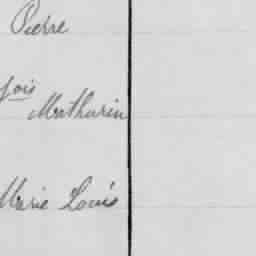 Pierre
fois
Mathurin
Marie Louis